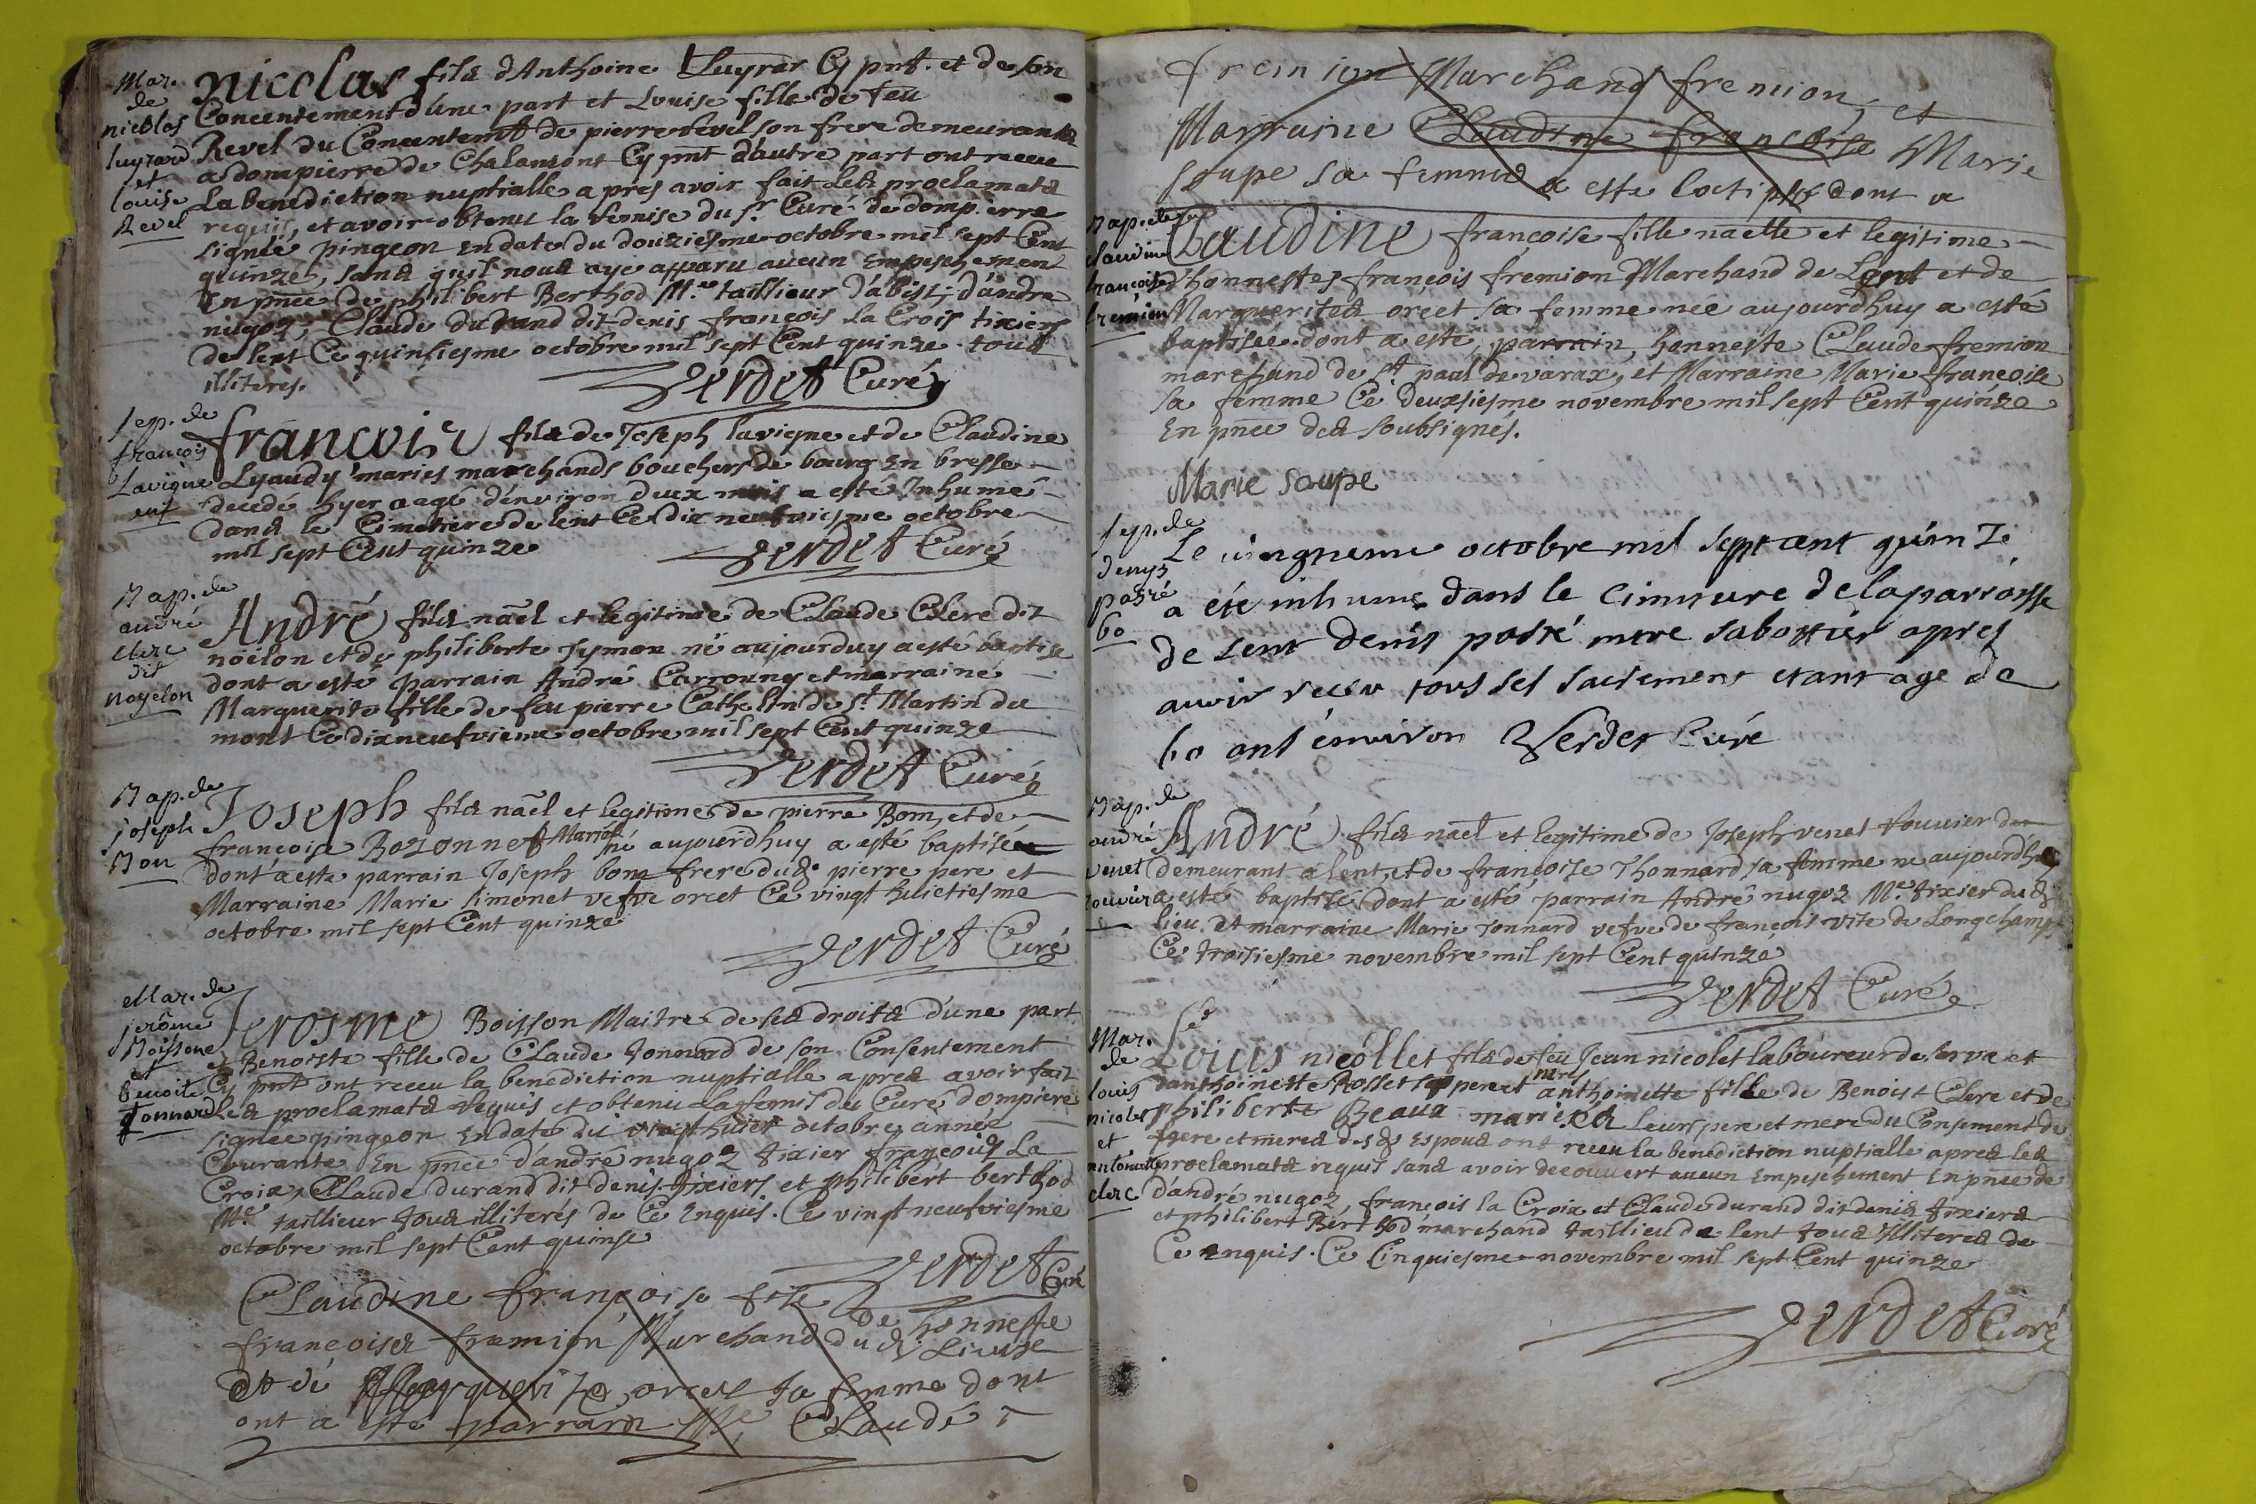 Mar.
de
nicolas
luyrard
et
louise
Revel
nicolas fils d'Anthoine Luyrar Cy pnt. et de son
Concentement d'une part et Louise fille de feu
Revel du Concentemt de pierre revel son frere demeurants
a dompierre de Chalamont Cy pnt d'autre part ont receu
La benediction nuptialle apres avoir fait les proclamats
requis, et avoir obtenu la remise du sr. Curé de dompierre
signée pingeon En date du douziesme octobre mil sept Cent
quinze, sans quil nous aye apparu aucun Empeschement
En pnce de philibert Berthod Me. taillieur d'abist, d'andre
nugoz, Claude durand dit denis francois la Crois tixiers
de lent Ce quinsiesme octobre mil sept Cent quinze tous
illiteres. Verdet Curé
sep. de
francois
Lavigne
enf
francois fils de Joseph lavigne et de Claudine
Lyaudy maries marchands bouchers de bourg En bresse
decedé hyer aagé d'environ deux mois a esté Inhumé
dans le Cimetiere de lent Ce dix neufviesme octobre
mil sept Cent quinze Verdet Curé
Bap. de
andré
clerc
dit
noyelon
André fils näel et legitime de Claude Clerc dit
nöelon et de philiberte symon né aujourduy a esté baptise
dont a esté parrain André Carroung et marraine
Marguerite fille de feu pierre Cathelin de st. Martin du
mont Ce dixneufvieme octobre mil sept Cent quinze
Verdet Curé
Bap. de
joseph
Bon
Joseph fils näel et legitime de pierre Bon, et de
francoise Bozonnet Maries né aujourdhuy a esté baptisé
dont a esté parrain Joseph bon frere dud. pierre pere et
Marraine Marie simonet vefve orcet Ce vingt huictiesme
octobre mil sept Cent quinze
Verdet Curé
Mar. de
jerôme
Boissone
et
benoite
tonnard
Jerosme Boisson Maitre de ses droits d'une part
et Benoiste fille de Claude tonnard de son Consentement
Cy pnt ont receu la benediction nuptialle apres avoir fait
les proclamats requis et obtenu du Curé dompierre
signée pingeon En date du vingthuict octobre année
Courante En pnce d'andré nugoz tixier françois La
Croix, Claude durand dit denis tixiers et philibert berthod
Me. taillieur tous illiterés de Ce Enquis. Ce vingt neufviesme
octobre mil sept Cent quinse
Verdet Curé
Claudine françoise file
de honneste
francoise fremion Marchand du d. Lieu
et de Marguerite orcet sa femme dont
ont a este parrain Me Claude
fremion Marchand fremion, et
Marraine Claudine françoise Marie
soupe sa femme a este dont a
Bap. de
claudine
françoise
fremion
Claudine françoise fille näelle et legitime
d'honnestes françois fremion Marchand de Lent et de
Marguerites orcet sa femme née aujourdhuy a esté
baptisée dont a esté, parrain, honneste Claude fremion
marchand de st paul de varax, et Marraine Marie françoise
sa femme Ce deuxsiesme novembre mil sept Cent quinze
En pnce des soubsignés.
Marie soupe
sep. de
denys
poszé
60
Le octobre mil sept cent quinze
a été inhumé dans le cimitiere de la parroisse
de Lent denis poszé mtre sabottier apres
avoir recu tous ses sacrement etant age de
60 ans environ Verdet Curé
Bap. de
andré
venet
rouvier
André fils näel et legitime de Joseph venet rouvier
demeurant a lent, et de françoise Thonnard sa femme ne aujourd'huy
a esté baptisé dont a esté parrain André nugoz Me. tixier dud.
lieu et marraine Marie tonnard vefve de françois vite de Longchamp
Ce troisiesme novembre mil sept Cent quinze
Verdet Curé
Mar.
de
louis
nicolet
et
antoinette
clerc
Louis nicollet fils de feu Jean nicolet laboureur de serva et
danthoinette Rosset pere et meres anthoinette fille de Benoist Clerc et de
philiberte Beaux mariees leurs pere et mere du Consement de
pere et meres desd. Espous ont receu la benediction nuptialle apres les
proclamats requis sans avoir decouvert aucun Empeschement En pnce de
d'andré nugoz, françois la Croix et Claude durand dit denis tixiers
et philibert Berthod marchand taillieur de lent tous illiteres de
Ce enquis. Ce Cinquiesme novembre mil sept Cent quinze
Verdet Curé